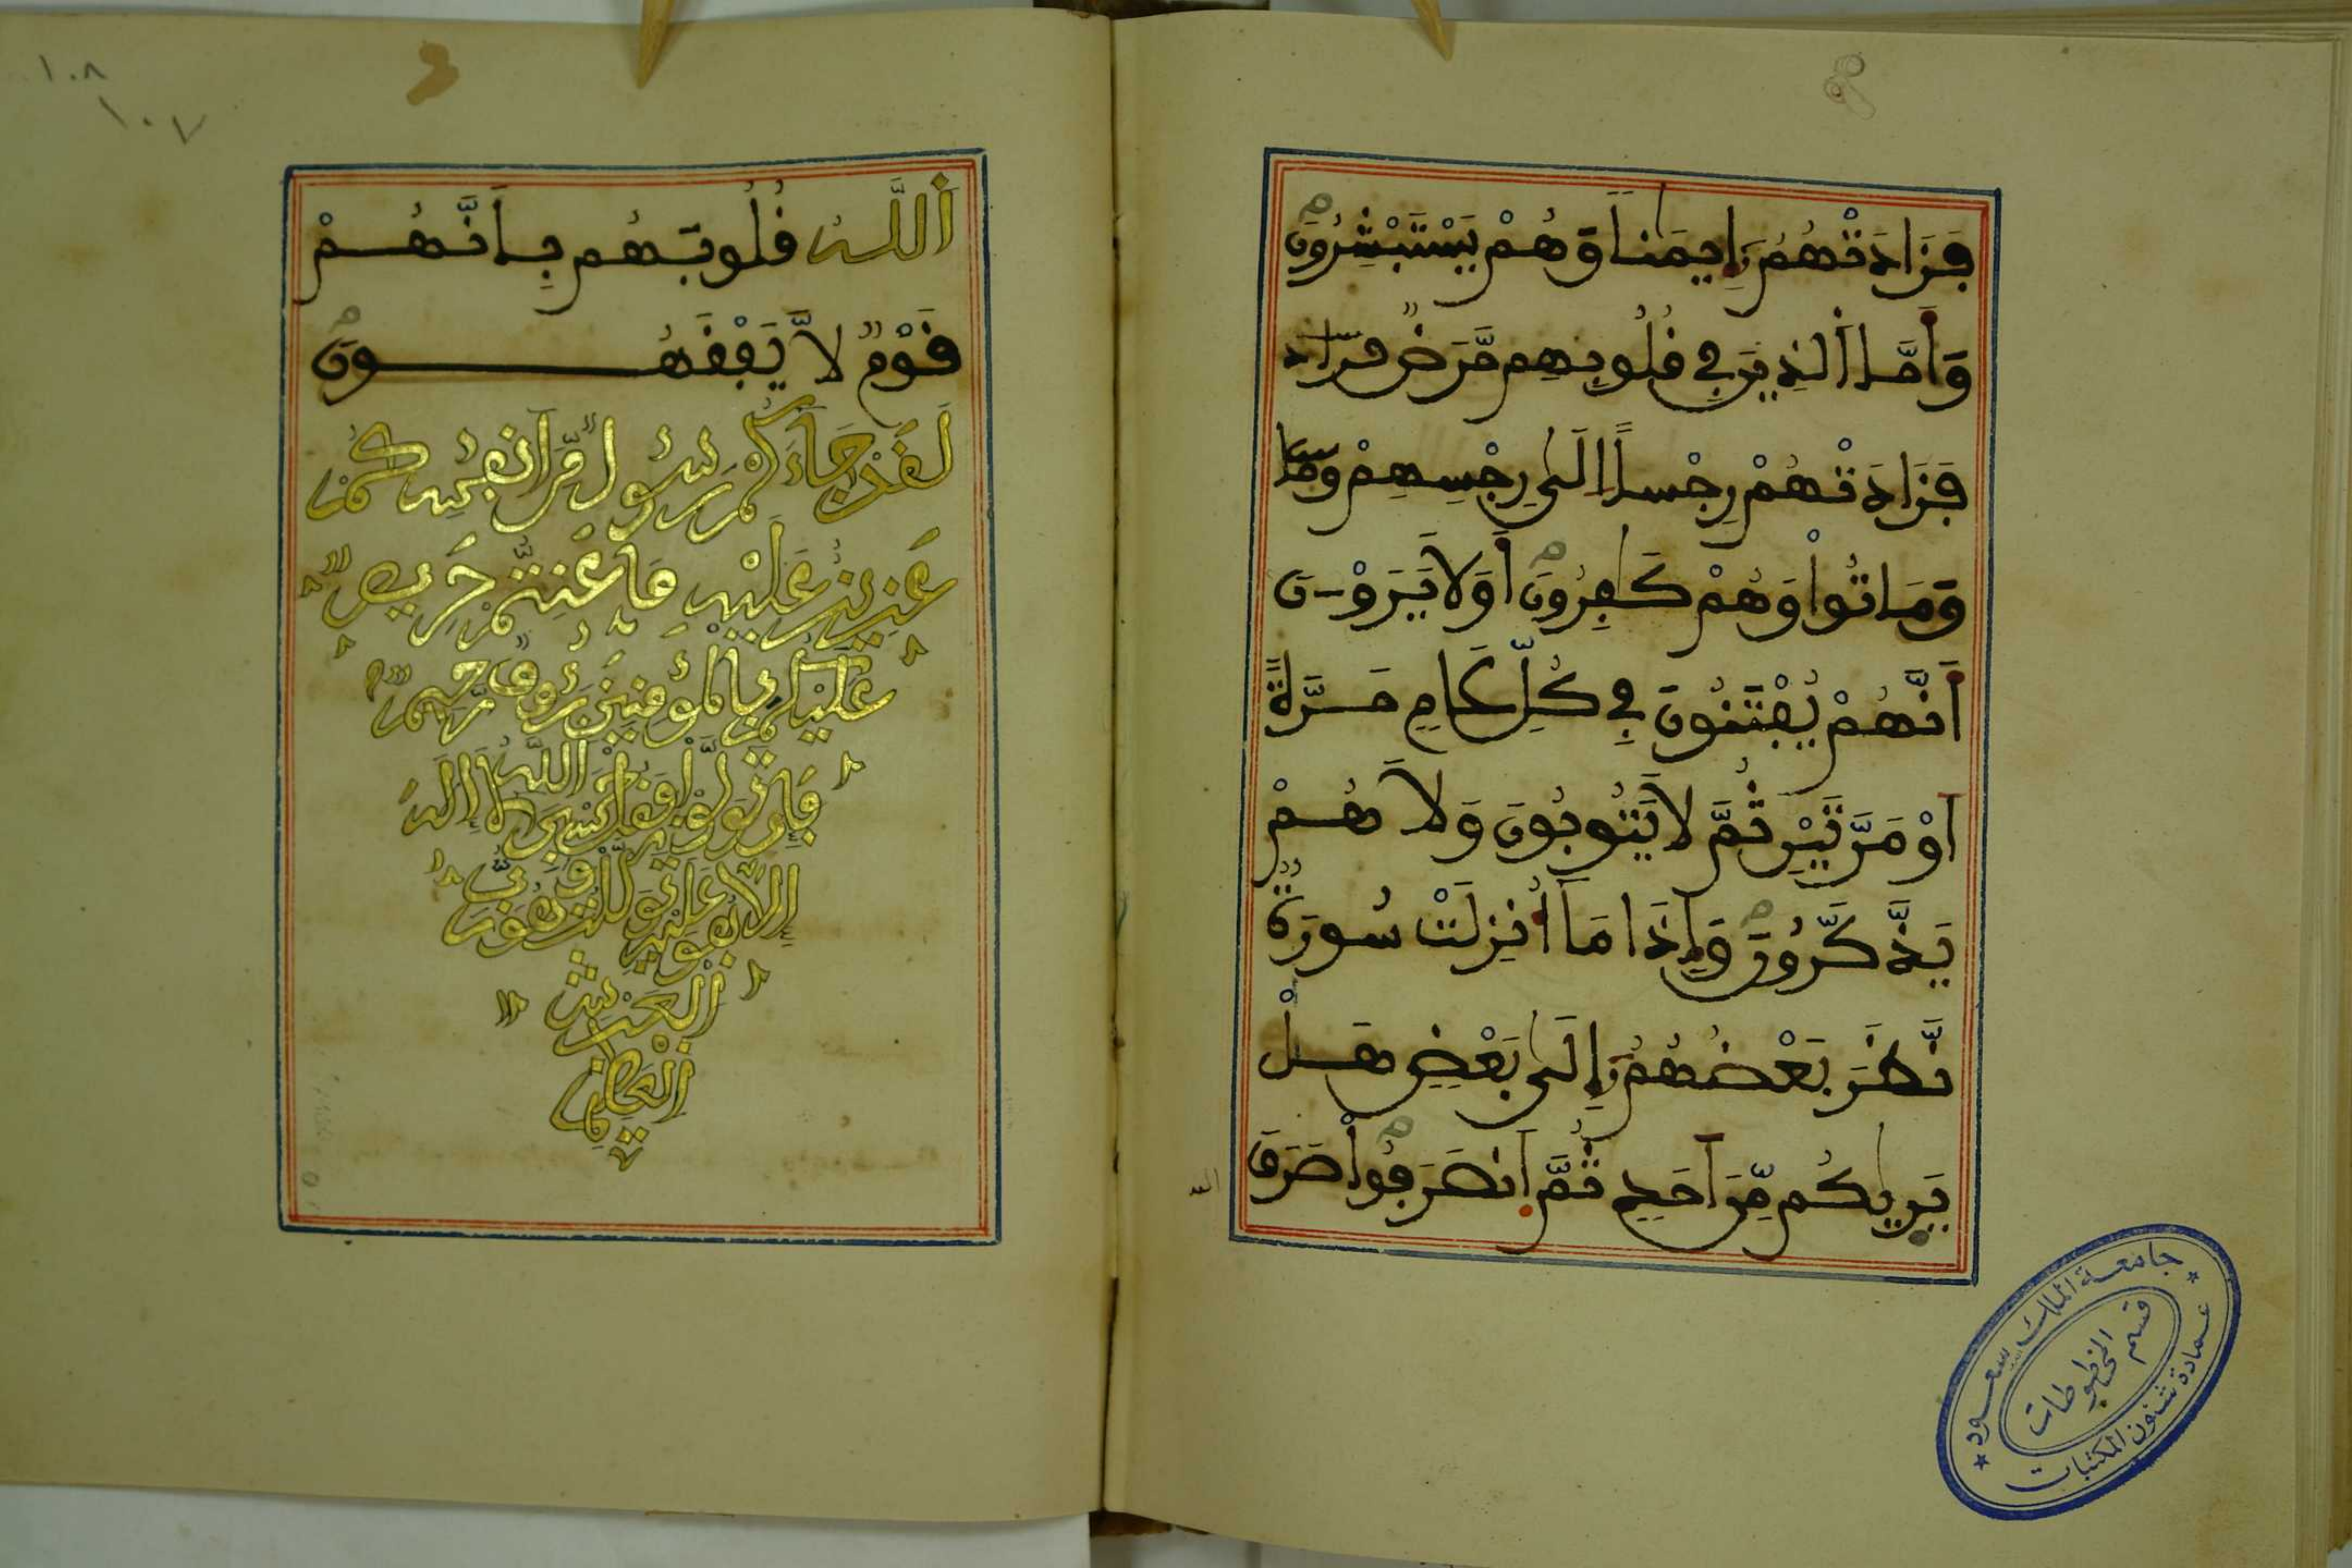 فَزَادَتْهُمُۥ إِيمَٰناً وَهُمْ يَسْتَبْشِرُونَ
وَأَمَّا ٱلذِينَ فِے قُلُوبِهِم مَّرَضٌ فزاد
فَزَادَتْهُمْ رِجْساً اِلَىٰ رِجْسِهِمْ وما
وَمَاتُواْ وَهُمْ كَٰفِرُونَ أَوَلَا يَرَوْنَ
أَنَّهُمْ يُفْتَنُونَ فِے كُلِّ عَامٍ مَرَّةً
اَوْ مَرَّتَيْنِ ثُمَّ لَا يَتُوبُونَ وَلَا هُمْ
يَذَّكَّرُونَ وَإِذَا مَا أُنزِلَتْ سُورَةٌ
نَّظَرَ بَعْضُهُمُۥ إِلَىٰ بَعْضٍ هَلْ
يَرٜيٰكُم مِّنَ اَحَدٍ ثُمَّ اَنصَرَفُواْ صَرَفَ
الله
جامعة الملك سعود
عمادة شئون المكتبات
قسم المخطوطات
١٠٨
١٠٧
اَللَّهُ قُلُوبَهُم بِأَنَّهُمْ
قَوْمٌ لَّا يَفْقَهُونَ
لَقَدْ جَآءَكُمْ رَسُولٌ مِّنَ اَنفُسِكُمْ
عَزِيزٌ عَلَيْهِ مَا عَنِتُّمْ حَرِيصٌ
عَلَيْكُم بِالْمُؤْمِنِينَ رَءُوفٌ رَّحِيمٌ
فَإِن تَوَلَّوْاْ فَقُلْ حَسْبِيَ اَللَّهُ لَا إِلَٰهَ
إِلَّا هُوَ عَلَيْهِ تَوَكَّلْتُ وَهُوَ رَبُّ
اَلْعَرْشِ
اِلْعَظِيمِ